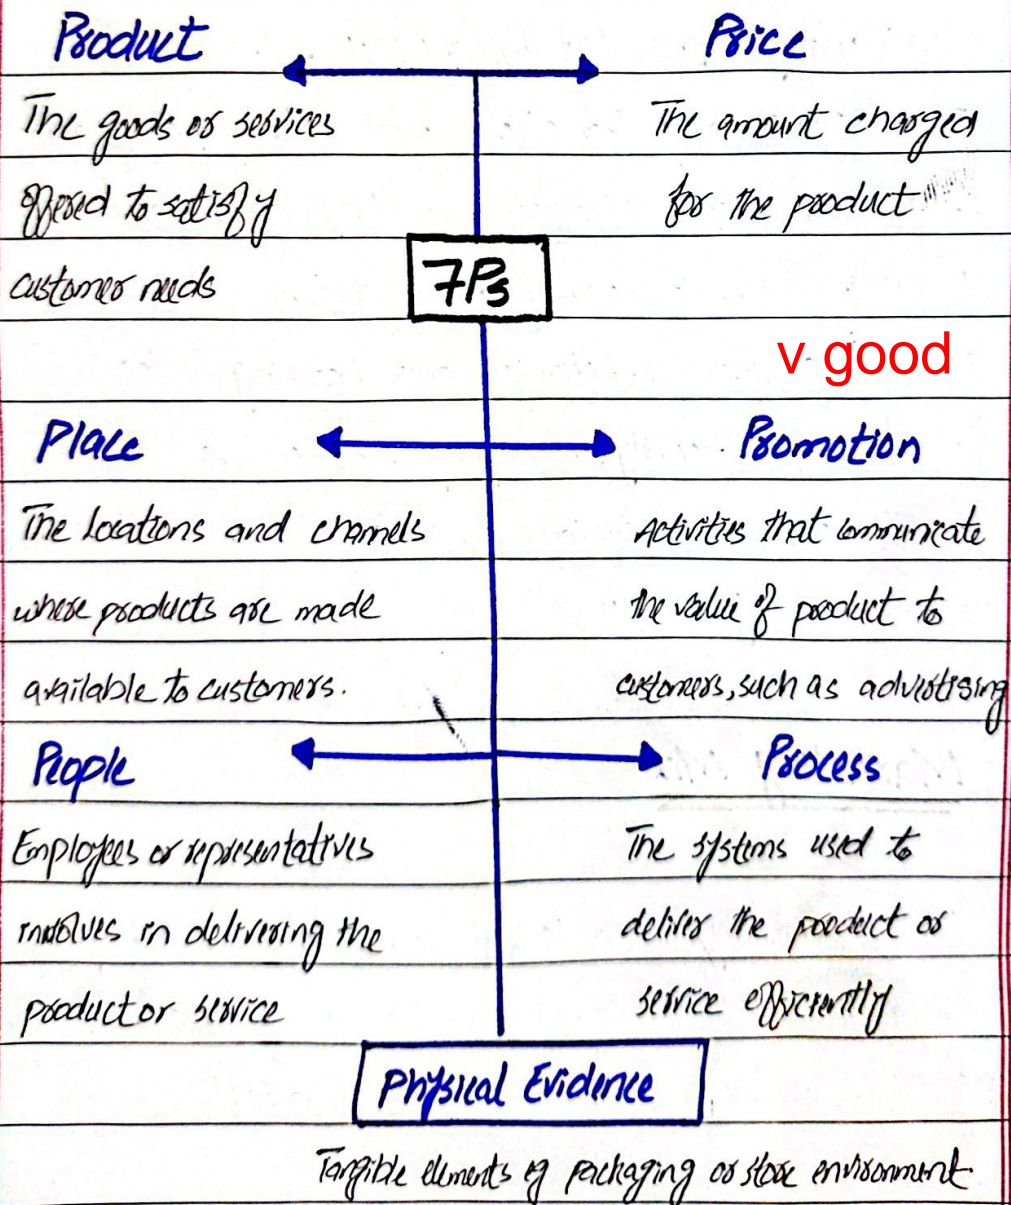 Product
The goods or services
offered to satisfy
customer needs
Price
The amount charged
for the product
7Ps
v good
Place
The locations and channels
where products are made
available to customers.
Promotion
Activities that communicate
the value of product to
customers, such as advertising
People
Employees or representatives
involves in delivering the
product or service
Process
The systems used to
deliver the product or
service efficiently
Physical Evidence
Tangible elements eg packaging or store environment